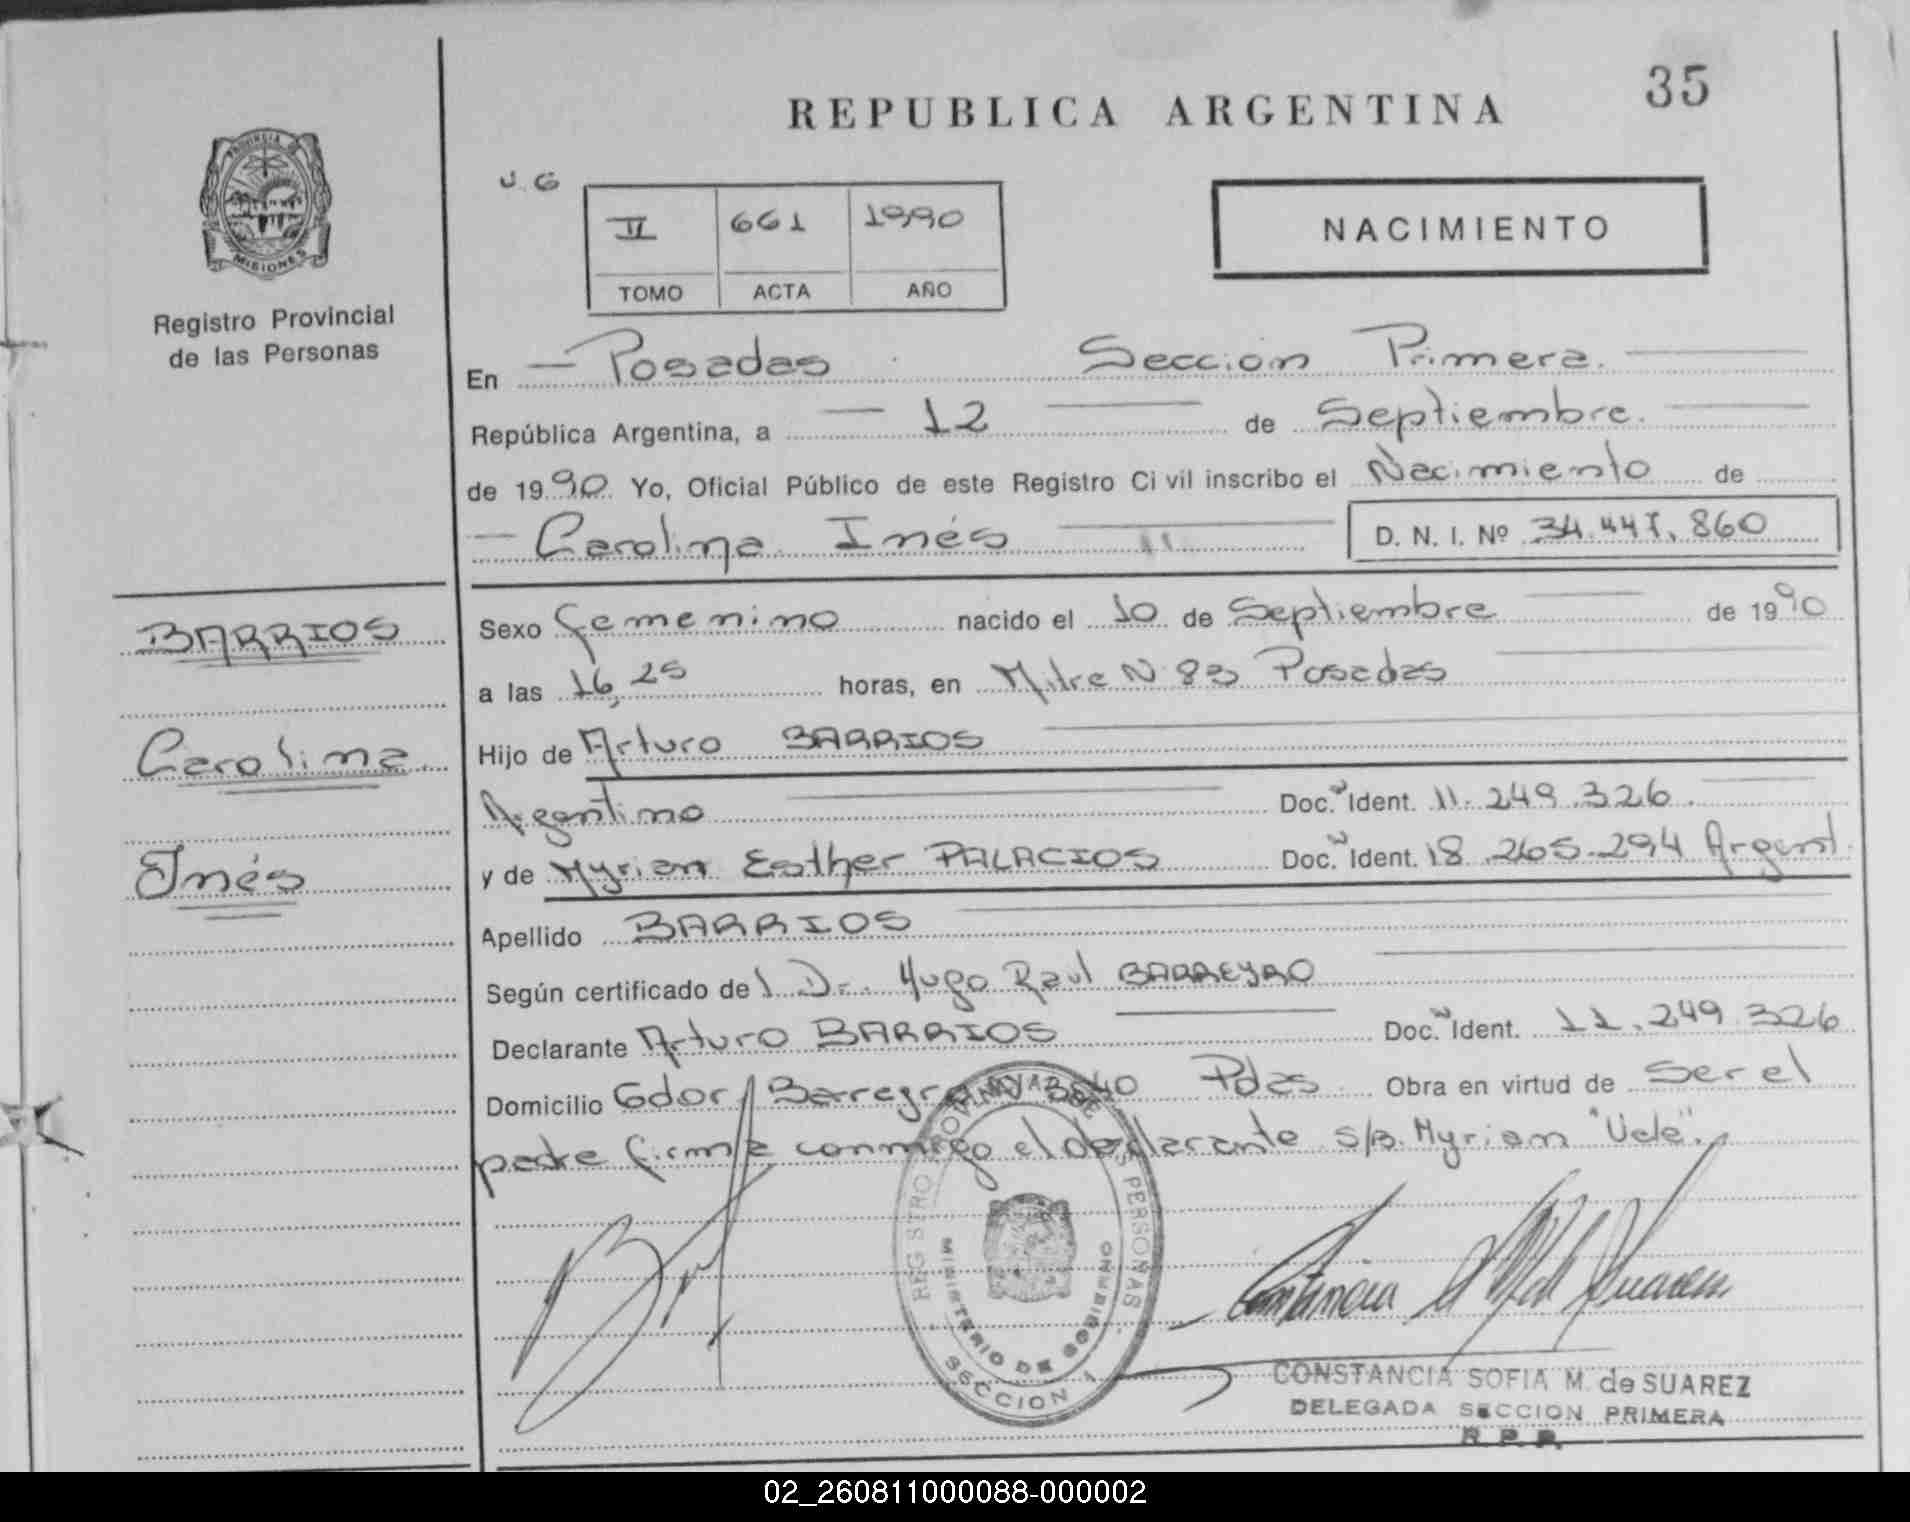 35
REPUBLICA ARGENTINA
PROVINCIA DE
MISIONES
Registro Provincial
de las Personas
J. G
II 661 1990
TOMO ACTA AÑO
NACIMIENTO
En Posadas Sección Primera.
República Argentina, a 12 de Septiembre.
de 1990. Yo, Oficial Público de este Registro Ci vil inscribo el Nacimiento de
Carolina Inés D. N. I. Nº 34.447.860
BARRIOS
Carolina
Inés
Sexo femenino nacido el 10 de Septiembre de 1990
a las 16,25 horas, en Mitre N 83 Posadas
Hijo de Arturo BARRIOS
Argentino Doc. Ident. 11.249.326.
y de Myrian Esther PALACIOS Doc. Ident. 18.265.294 Argent.
Apellido BARRIOS
Según certificado del Dr. Hugo Raul BARREYRO
Declarante Arturo BARRIOS Doc. Ident. 11.249.326
Domicilio Gdor Barreyro 3640 Pdas Obra en virtud de Ser el
padre firma conmigo el declarante s/b. Myrian "Vale".
REGISTRO PROVINCIAL DE LAS PERSONAS
MINISTERIO DE GOBIERNO
SECCION 1
CONSTANCIA SOFIA M. de SUAREZ
DELEGADA SECCION PRIMERA
R. P. P.
02_260811000088-000002